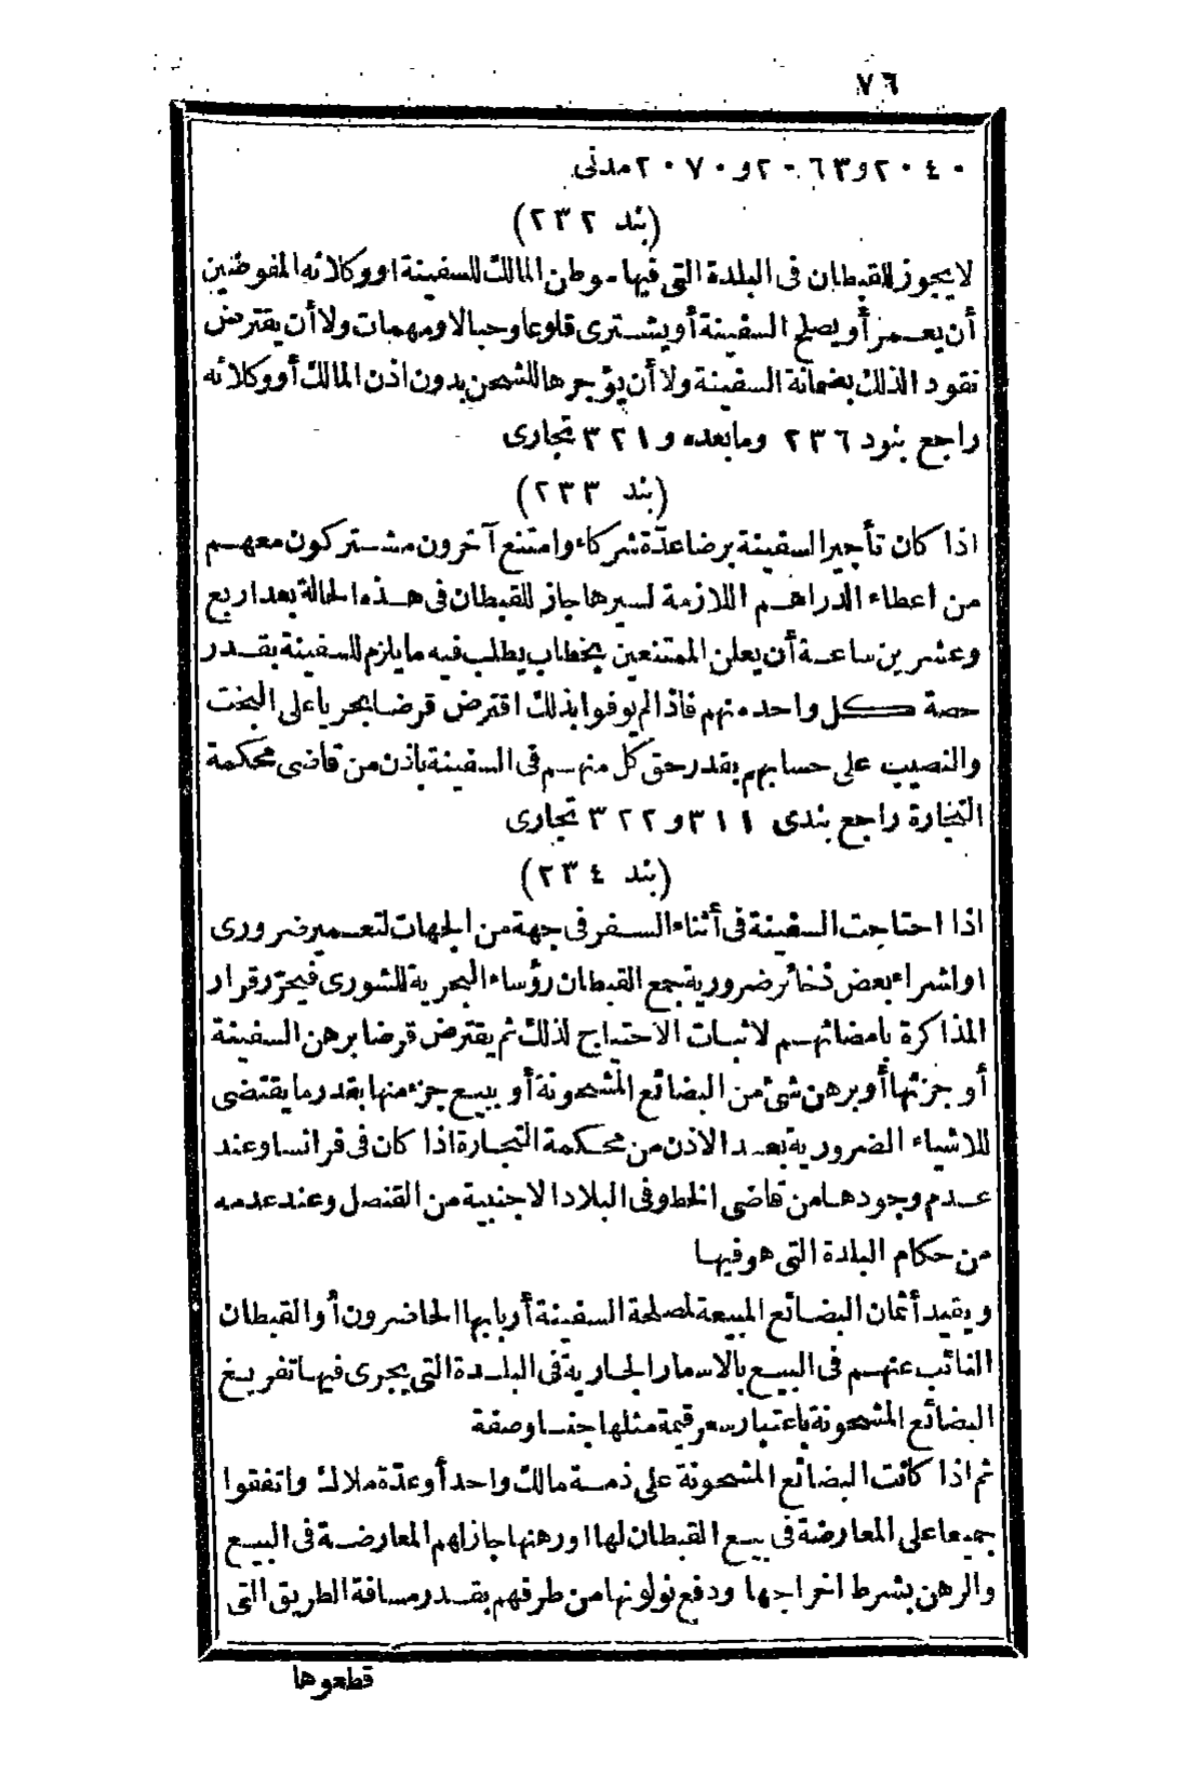 ٧٦
٢٠٤٠ و٢٠٦٣ و٢٠٧٠ مدنى
(بند ٢٣٢)
لا يجوز للقبطان فى البلدة التى فيها موطن المالك للسفينة او وكلائه المفوضين
أن يعمر أو يصلح السفينة أو يشترى قلوعا وحبالا ومهمات ولا أن يقترض
نقود الذلك بضمانة السفينة ولا أن يؤجرها للشحن بدون اذن المالك أو وكلائه
راجع بنود ٢٣٦ وما بعده و٣٢١ تجارى
(بند ٢٣٣)
اذا كان تأجير السفينة برضا عدّة شركاء وامتنع آخرون مشتركون معهم
من اعطاء الدراهم اللازمة لسيرها جاز للقبطان فى هذه الحالة بعد اربع
وعشرين ساعة أن يعلن الممتنعين بخطاب يطلب فيه ما يلزم للسفينة بقدر
حصة كل واحد منهم فاذا لم يوفوا بذلك اقترض قرضا بحريا على البخت
والنصيب على حسابهم بقدر حق كل منهم فى السفينة باذن من قاضى محكمة
التجارة راجع بندى ٣١١ و٣٢٢ تجارى
(بند ٢٣٤)
اذا احتاجت السفينة فى أثناء السفر فى جهة من الجهات لتعمير ضرورى
او اشراء بعض ذخائر ضرورية جمع القبطان رؤساء البحرية للشورى فيحرّر قرار
المذاكرة بامضائهم لاثبات الاحتياج لذلك ثم يقترض قرضا برهن السفينة
أو جزئها أو برهن شئ من البضائع المشحونة أو يبيع جزء منها بقدر ما يقتضى
للاشياء الضرورية بعد الاذن من محكمة التجارة اذا كان فى فرانسا وعند
عدم وجودها من قاضى الخط وفى البلاد الاجنبية من القنصل وعند عدمه
من حكام البلدة التى هو فيها
ويقيد أثمان البضائع المبيعة لمصلحة السفينة أربابها الحاضرون أو القبطان
النائب عنهم فى البيع بالاسعار الجارية فى البلدة التى يجرى فيها تفريغ
البضائع المشحونة باعتبار سعر قيمة مثلها جنسا وصفة
ثم اذا كانت البضائع المشحونة على ذمة مالك واحد أو عدّة ملاك واتفقوا
جميعا على المعارضة فى بيع القبطان لها اورهنها جاز لهم المعارضة فى البيع
والرهن بشرط اخراجها ودفع نولونها من طرفهم بقدر مسافة الطريق التى
قطعوها